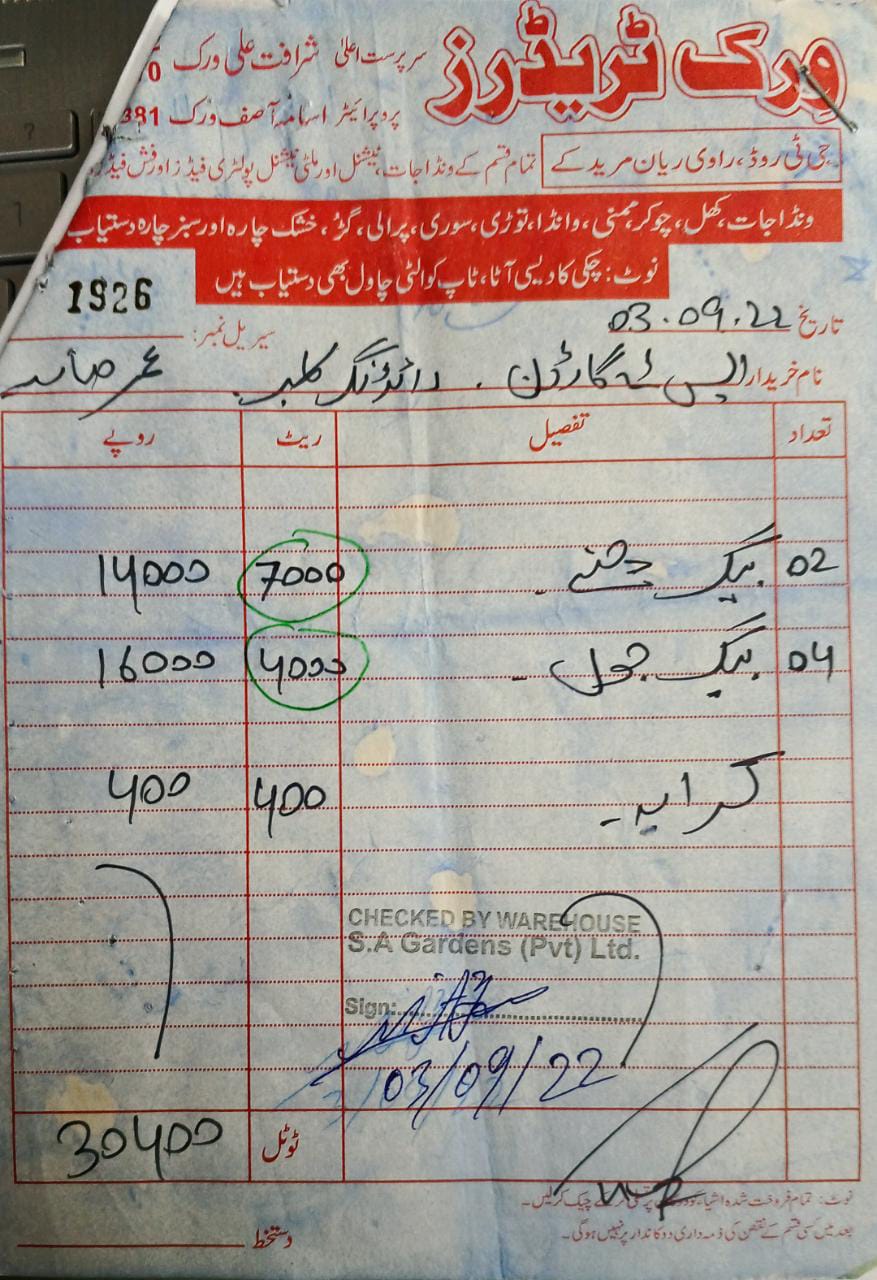 ورک ٹریڈرز
سرپرست اعلیٰ شرافت علی ورک 0
پروپرائیٹر اسامہ آصف ورک 381
جی ٹی روڈ، راوی ریان مریدکے
تمام قسم کے ونڈا جات، نیشنل اور ملٹی نیشنل پولٹری فیڈز اور فش فیڈز
ونڈا جات، کھل، چوکر، ممنی، وانڈا، توڑی، سوری، پرالی، گڑ، خشک چارہ اور سبز چارہ دستیاب
نوٹ: چکی کا دیسی آٹا، ٹاپ کوالٹی چاول بھی دستیاب ہیں
تاریخ 03.09.22
سیریل نمبر: 1926
نام خریدار ایس اے گارڈن . رائڈنگ کلب . عمر صاحب
تعداد تفصیل ریٹ روپے
02 بیگ چنے - 7000 14000
04 بیگ 4000 16000
کرایہ - 400 400
CHECKED BY WAREHOUSE
S.A Gardens (Pvt) Ltd.
Sign:
03/09/22
ٹوٹل 30400
نوٹ: تمام فروخت شدہ اشیاء چیک کر لیں۔
بعد میں کسی قسم کے نقص کی ذمہ داری دوکاندار پر نہیں ہوگی۔
دستخط